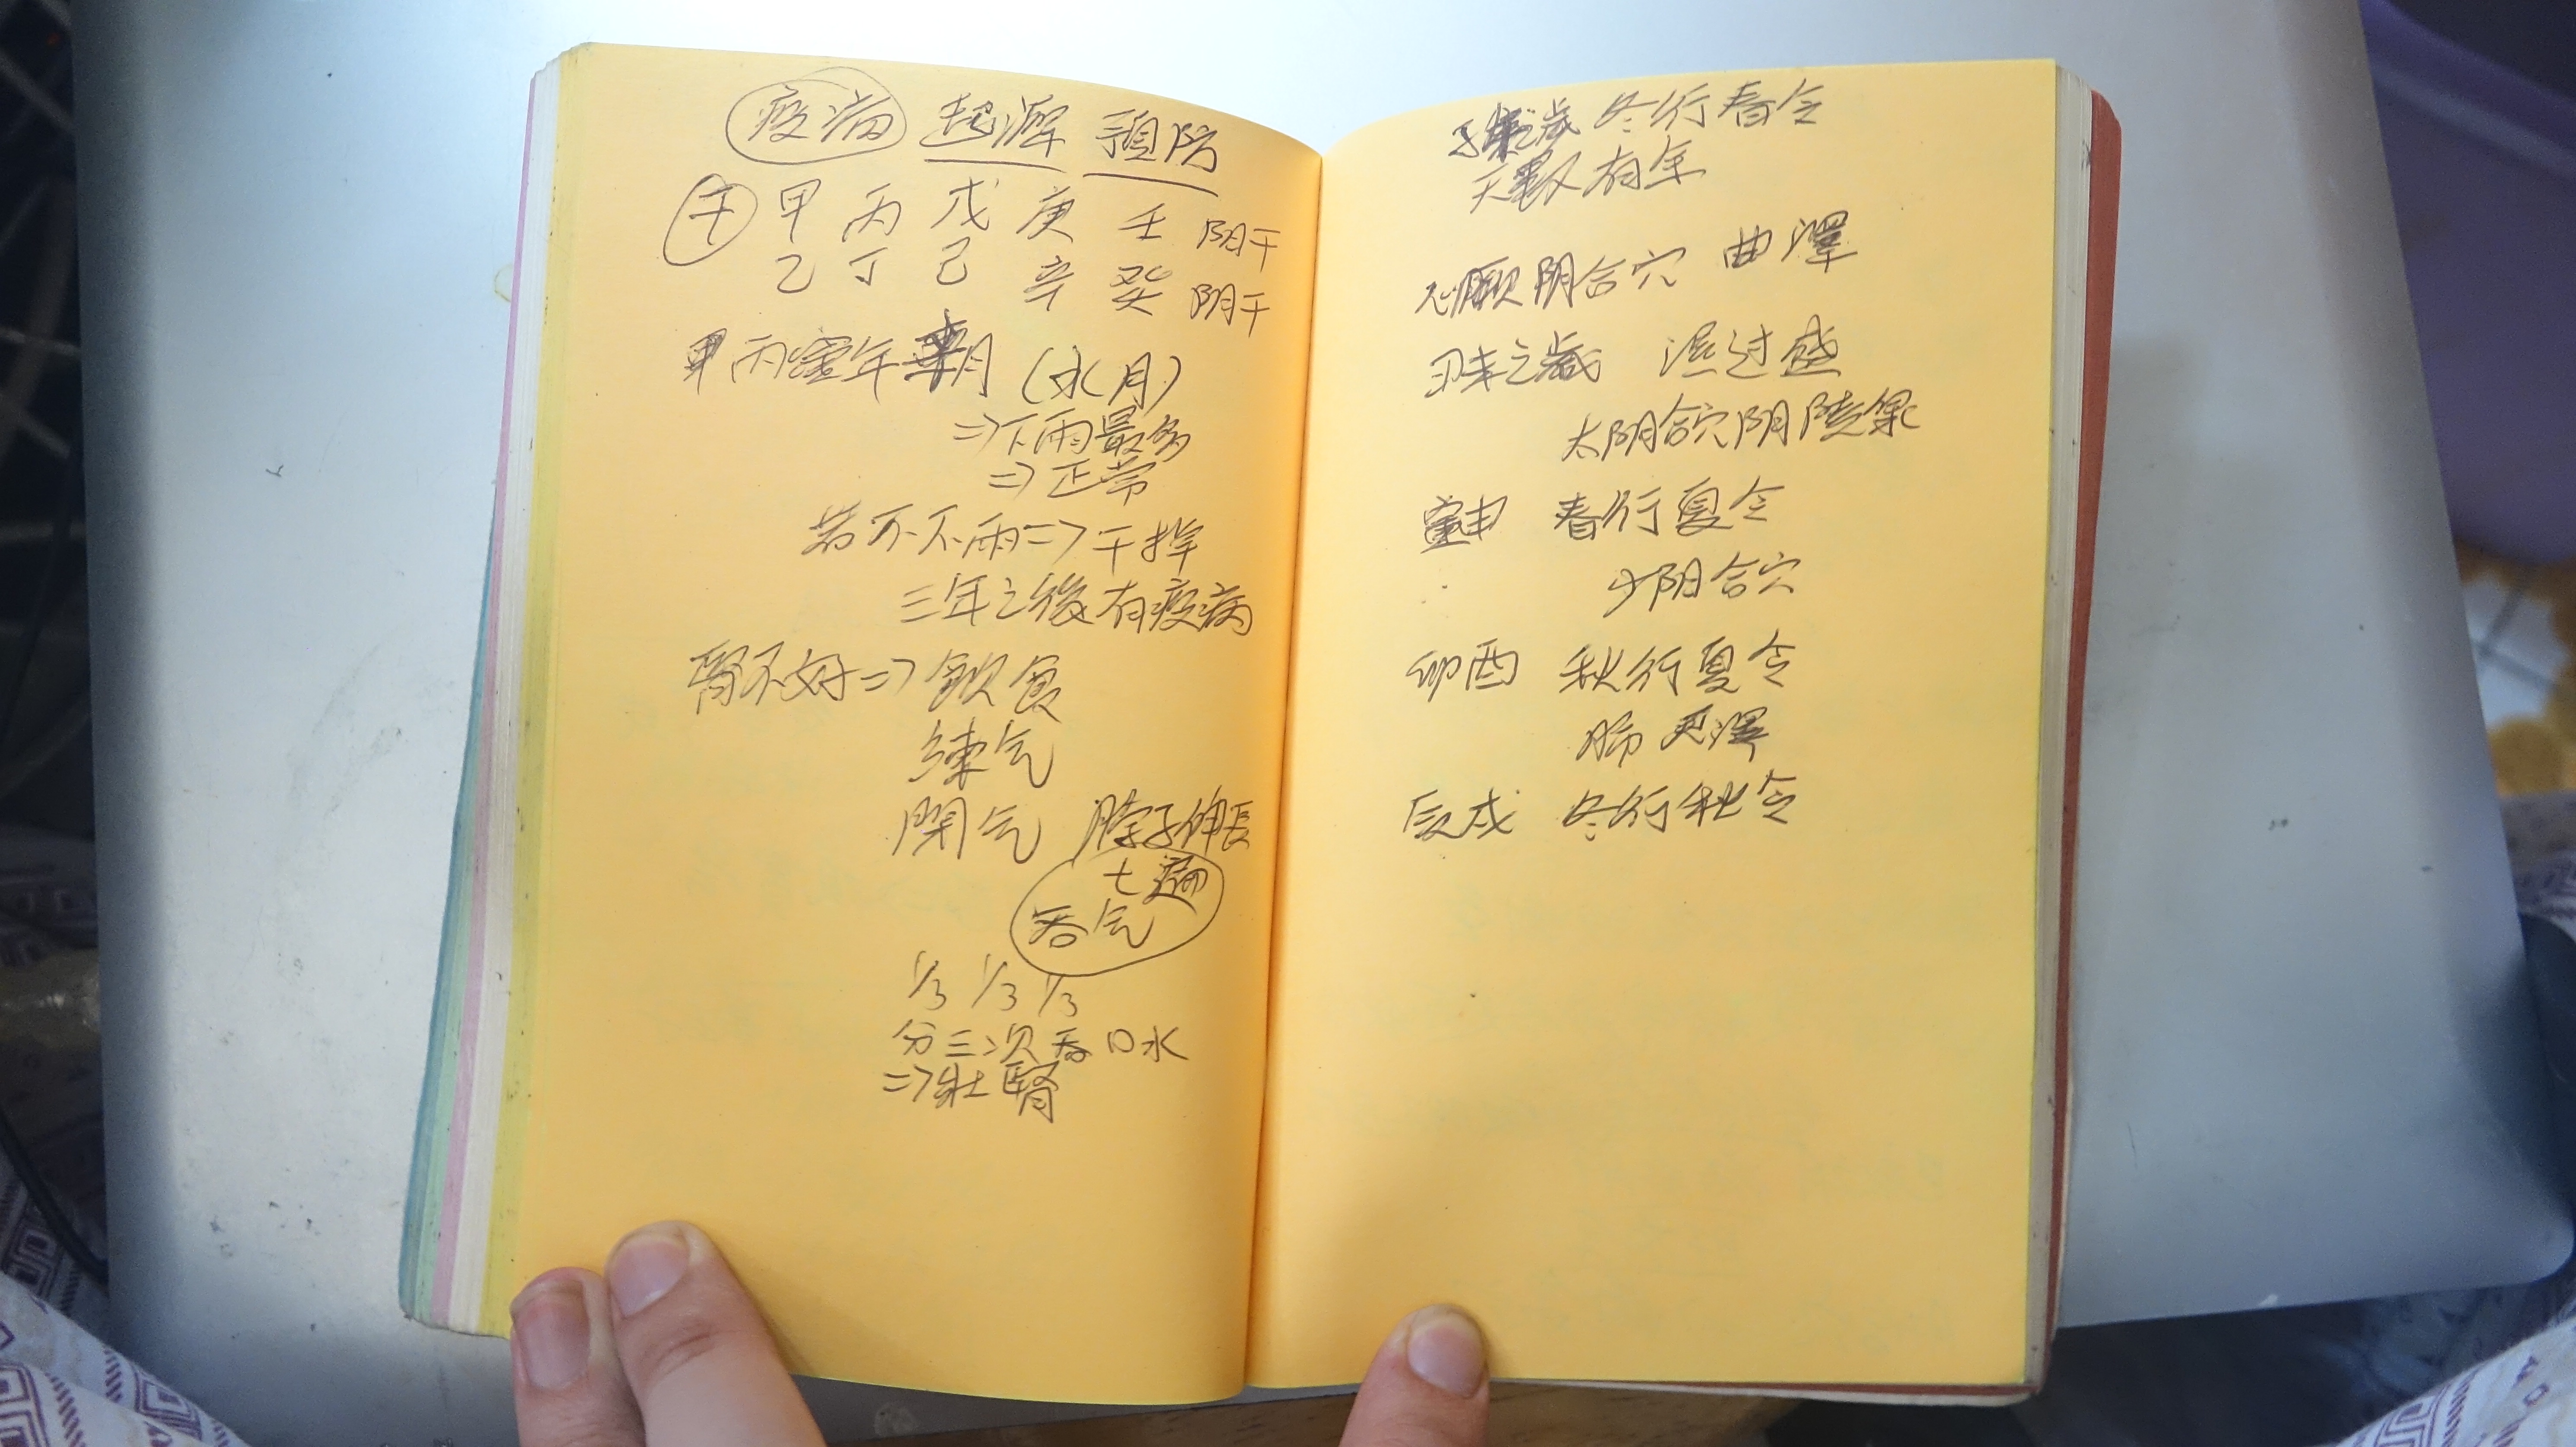 疫病 起源 預防
干 甲 丙 戊 庚 壬 阴干
乙 丁 己 辛 癸 阴干
丙 年 月 (水月)
⇒下雨最多
⇒正常
若不下雨⇒干撑
三年之後有疫病
腎不好⇒飲食
練气
閉气 脖子伸長
七遍
吞气
1/3 1/3 1/3
分三次吞口水
⇒壯腎
子 之歲 冬行春令
天 有年
心 阴合穴 曲澤
丑未之歲 濕过盛
太阴合穴阴陵泉
寅申 春行夏令
少阴合穴
卯酉 秋行夏令
肺 尺澤
辰戌 冬行秋令